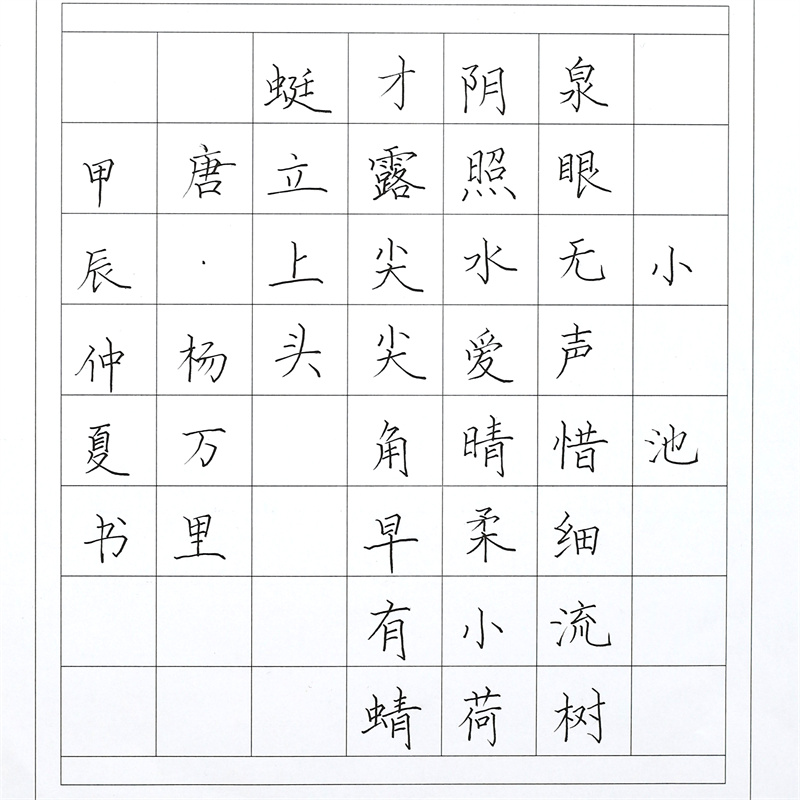 小池
泉眼无声惜细流树
阴照水爱晴柔小荷
才露尖尖角早有蜻
蜓立上头
唐·杨万里
甲辰仲夏书